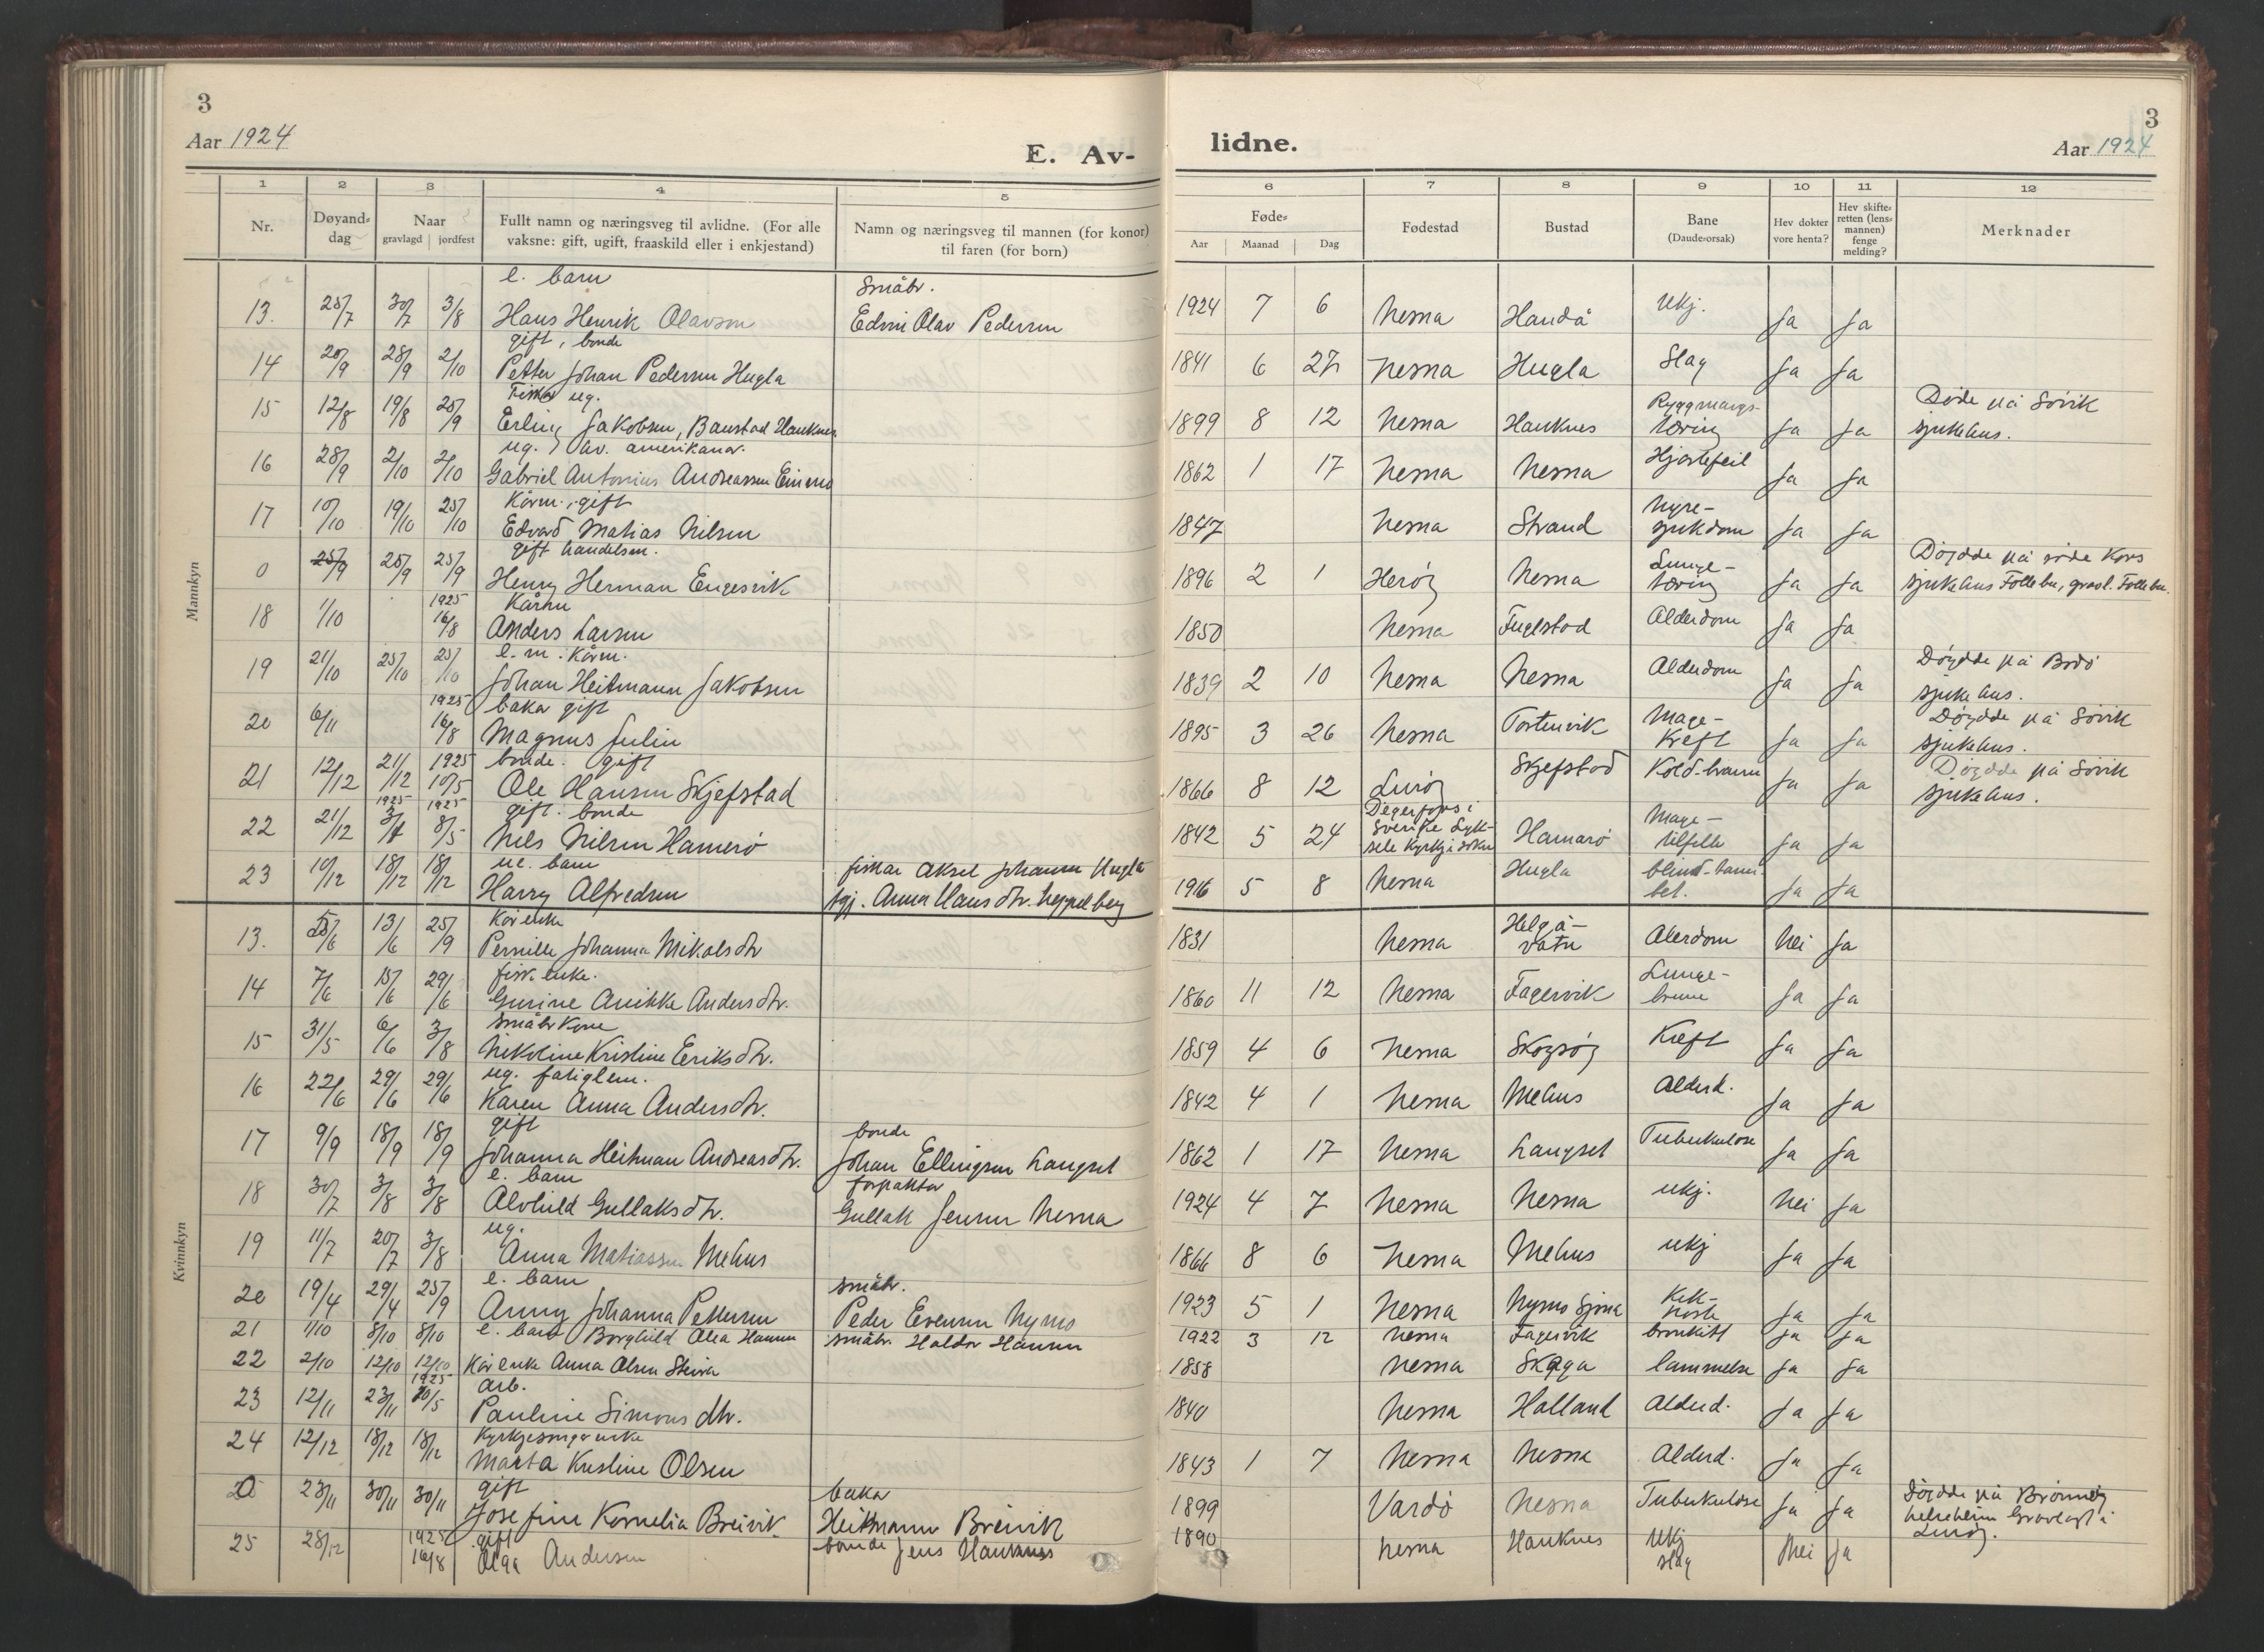 3
Aar 1924
E. Av-
1 2 3 4 5
Nr. Døyand-dag Naar gravlagd jordfest Fullt namn og næringsveg til avlidne. (For alle vaksne: gift, ugift, fraaskild eller i enkjestand) Namn og næringsveg til mannen (for konor) til faren (for born)
Mannkyn
e. barn småbr.
13. 25/7 30/7 3/8 Hans Henrik Olavson Edvin Olav Pedersen
gift, bonde
14 20/9 28/9 2/10 Petter Johan Pedersen Hugla
Fiskar ug.
15 12/8 19/8 25/9 Erling Jakobsen, Baustad Hauknes
ug. av. amerikanar.
16 28/9 2/10 2/10 Gabriel Antonius Andreassen
Kårm. gift
17 10/10 19/10 25/10 Edvard Matias Nilsen
gift handelsm.
0 25/9 25/9 25/9 Henry Herman Engesvik
1925 Kårm
18 1/10 16/8 Anders Larsen
e. m. Kårm.
19 21/10 25/10 25/10 Johan Heitmann Jakobsen
1925 baka gift
20 6/11 16/8 Magnus Julin
1925 bonde. gift
21 12/12 21/12 10/5 Ole Hansen Skjefstad
1925 1925 gift. bonde
22 21/12 3/1 8/5 Nils Nilsen Hamerö
ue. barn fiskar Aksel Johansen Hugla
23 10/12 18/12 18/12 Harry Alfredsen tgj. Anna Hans dtr.
Kvinnkyn
Kårenke
13. 5/6 13/6 25/9 Pernille Johanna Mikals dtr
fisk. enke.
14 7/6 15/6 29/6 Gurine Anikka Anders dtr.
småbr Kone
15 31/5 6/6 3/8 Nikoline Kristine Eriks dtr.
ug. fatiglem.
16 22/6 29/6 29/6 Karen Anna Anders dtr.
gift bonde
17 9/9 18/9 18/9 Johanna Heitman Andreas dtr. Johan Ellingsen Langset
e. barn forpaktar
18 30/7 3/8 3/8 Alvhild Gullaks dtr. Gullak Jensen Nesna
ug.
19 11/7 20/7 3/8 Anna Matiassen Mehus
e. barn småbr.
20 19/4 29/4 25/9 Anny Johanna Pettersen Peder Evensen Nymo
21 1/10 8/10 8/10 e. barn Borghild Alea Hansen småbr. Haldor Hansen
22 2/10 12/10 12/10 Kår enke Anna Olsen
1925 arb.
23 12/11 23/11 10/5 Pauline Simons dtr.
Kyrkjesongar enke
24 12/12 18/12 18/12 Marta Kristine Olsen
gift baka
0 23/11 30/11 30/11 Josefine Kornelia Breivik Heitmann Breivik
1925 gift bonde
25 28/12 16/8 Olga Andersen Jens Hauknes
3
lidne.
Aar 1924
6 7 8 9 10 11 12
Føde- Aar Maanad Dag Fødestad Bustad Bane (Daude-orsak) Hev dokter vore henta? Hev skifte-retten (lens-mannen) fenge melding? Merknader
1924 7 6 Nesna Handå Ukj. Ja Ja
1841 6 27 Nesna Hugla Slag Ja Ja
1899 8 12 Nesna Hauknes Ryggmargs-tæring Ja Ja Døde på Sövik sjukehus.
1862 1 17 Nesna Nesna Hjartefeil Ja Ja
1847 Nesna Strand Nyre-sjukdom Ja Ja
1896 2 1 Heröy Nesna Lunge-tæring Ja Ja Döydde på röde Kors sjukehus Follebu, gravl. Follebu.
1850 Nesna Fuglstad Alderdom Ja Ja
1839 2 10 Nesna Nesna Alderdom Ja Ja Döydde på Bodö sjukehus.
1895 3 26 Nesna Mage-kreft Ja Ja Döydde på Sövik sjukehus.
1866 8 12 Luröy Skjefstad Kold-brann Ja Ja Döydde på Sövik sjukehus.
1842 5 24 Degerfors i Sverike Lyk-sele kyrkjesokn Hamarö Mage-tilfelle Ja Ja
1916 5 8 Nesna Hugla blind-tarm-bet. Ja Ja
1831 Nesna Helgå-vatn Alerdom Nei Ja
1860 11 12 Nesna Fagervik Lunge-brune Ja Ja
1859 4 6 Nesna Skogsöy Kreft Ja Ja
1842 4 1 Nesna Mehus Alderd. Ja Ja
1862 1 17 Nesna Langset Tuberkulose Ja Ja
1924 4 7 Nesna Nesna ukj. Nei Ja
1866 8 6 Nesna Mehus ukj Ja Ja
1923 5 1 Nesna Nymo Sjona Kik-hoste Ja Ja
1922 3 12 Nesna Fagervik bronkitt Ja Ja
1858 Nesna Skoga lammelse Ja Ja
1840 Nesna Halland Alderd. Ja Ja
1843 1 7 Nesna Nesna Alderd. Ja Ja
1899 Vardö Nesna Tuberkulose Ja Ja Döydde på Brönnöy helseheim Gravlagt i Luröy.
1890 Nesna Hauknes Ukj slag Nei Ja